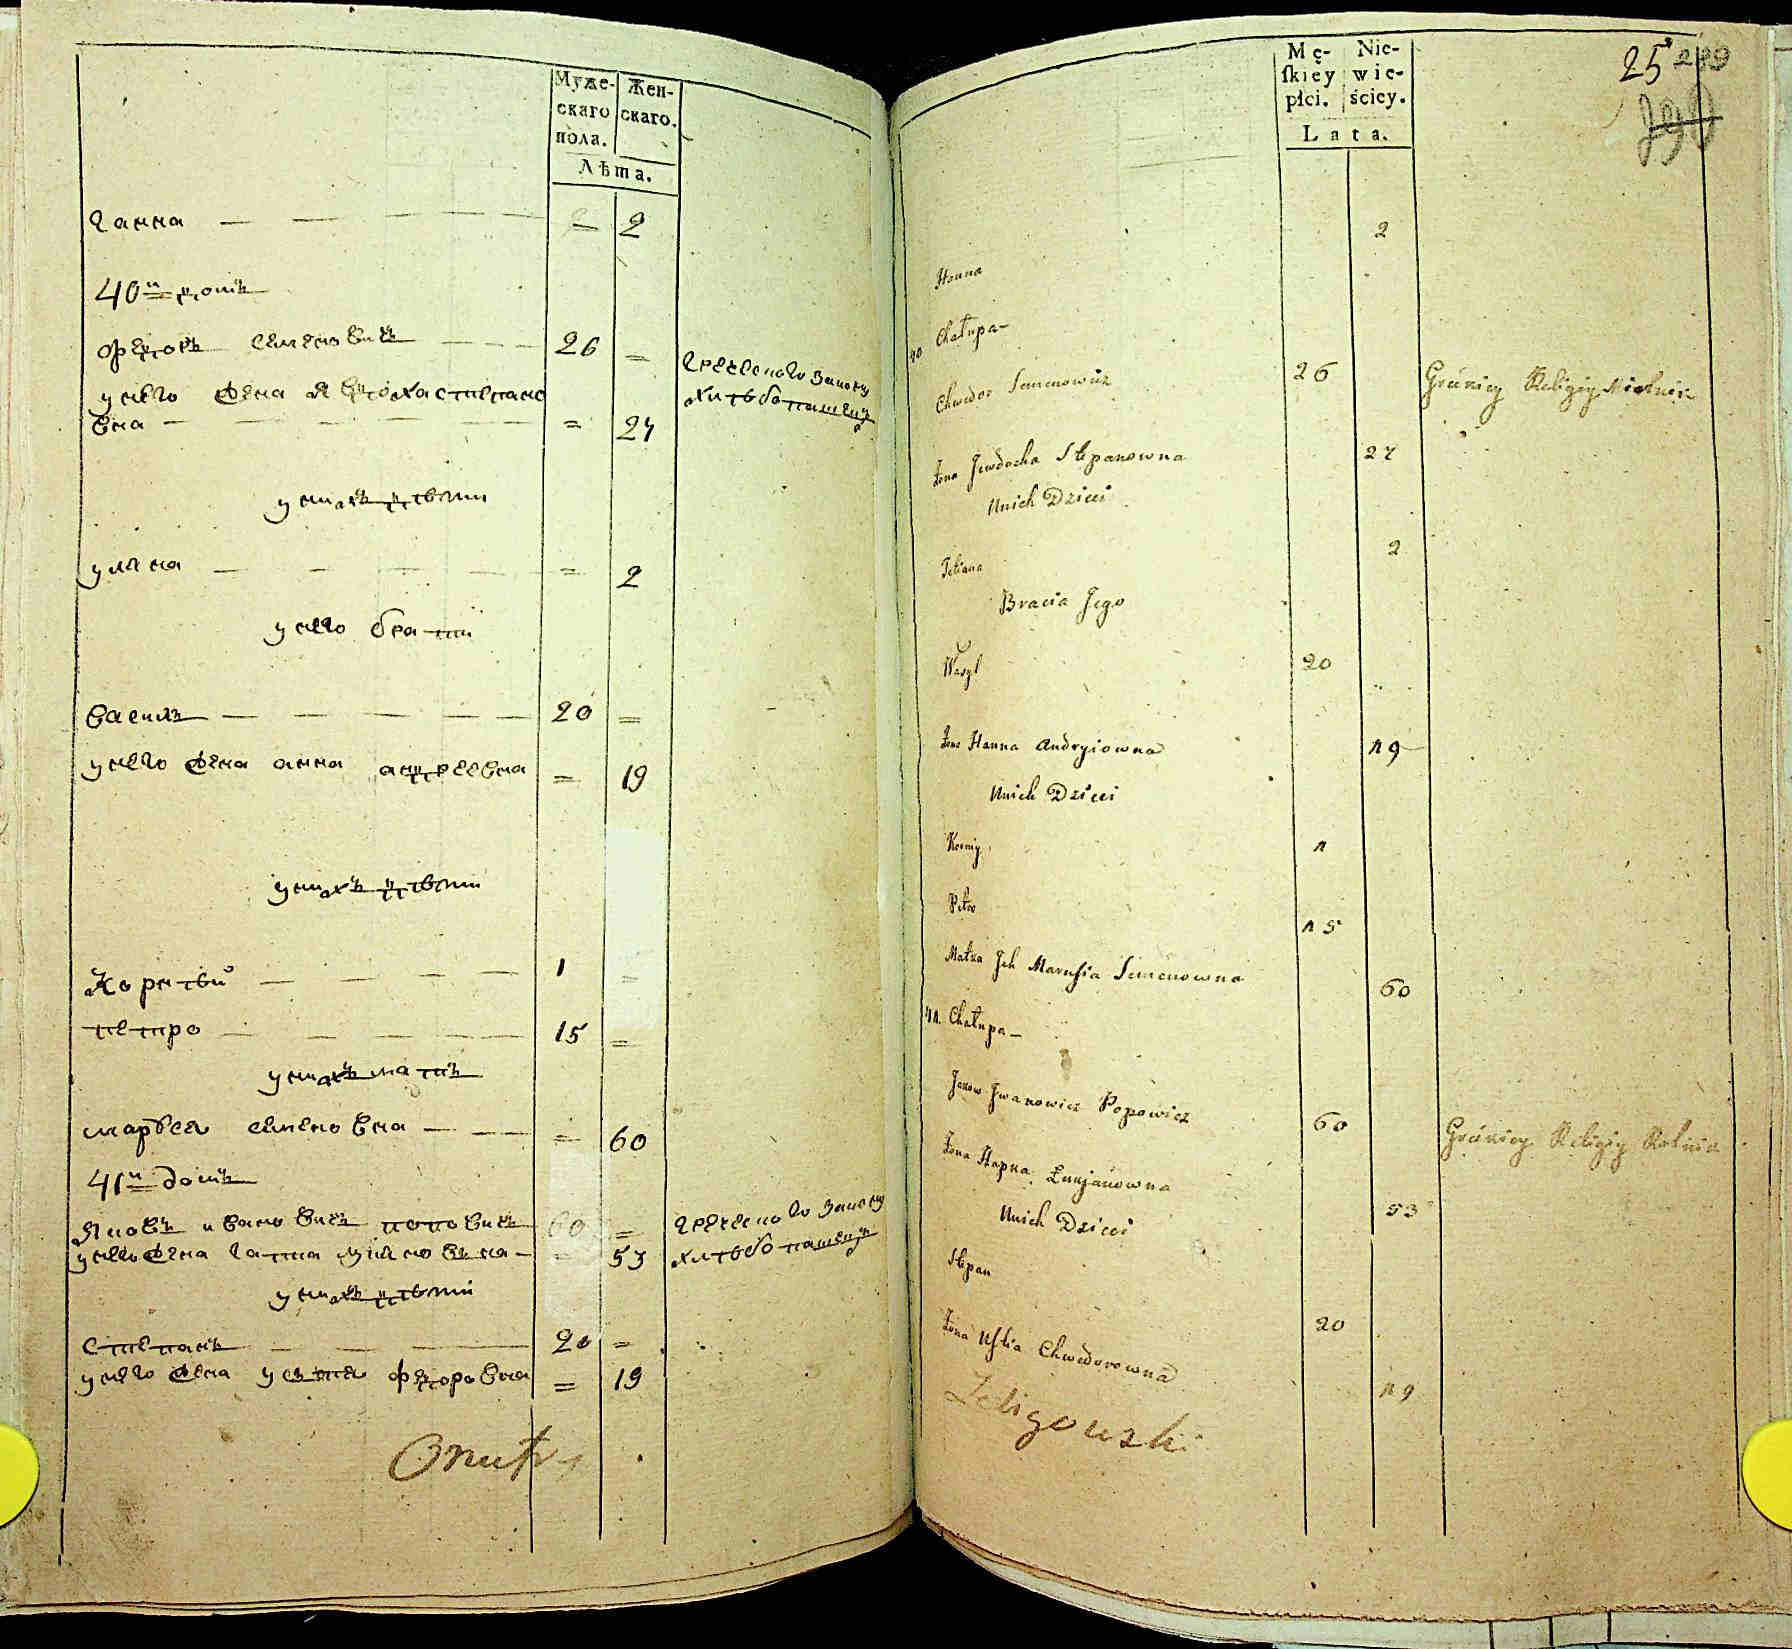 Муже- Жен-
скаго скаго.
пола.
Лѣта.
ганна — — — — — = 2
40й домъ
Федоръ Семеновичъ — — — 26 = греческого закону
у него жена Явдоха степано хлѣбопашецъ
вна — — — — — = 27
у нихъ дѣти
уляна — — — — — = 2
у него братія
Василь — — — — — 20 =
у него жена анна андреевна = 19
у нихъ дѣти
Корнѣй — — — — 1 =
петро — — — — — 15 =
у нихъ мать
марвея семеновна — — = 60
41й домъ
Яновъ ивановичъ поповичъ 60 = греческого закону
у него жена гапка лукяновъна — = 53 хлѣбопашецъ
у нихъ дѣти
степанъ — — — — 20 =
у него жена устя федоровна = 19
Mę- Nie-
ſkiey wie-
płci. ścicy.
Lata.
25
290
Hanna 2
40 Chałupa —
Chwedor Semenowicz 26 Gréckiey Religiy
Żona Jewdocha Stepanowna 27
Unich Dzieci
Tetiana 2
Bracia Jego
Wasyl 20
Żona Hanna Andryiowna 19
Unich Dzieci
Korniy 1
Petro 15
Matka Jch Marusia Semenowna 60
41. Chałupa —
Janow Jwanowicz Popowicz 60 Gréckiey Religiy Rolnik
Żona Hapka Łukjanowna 53
Unich Dzieci
Stepan 20
Żona Ustia Chwedorowna 19
Zeligowski